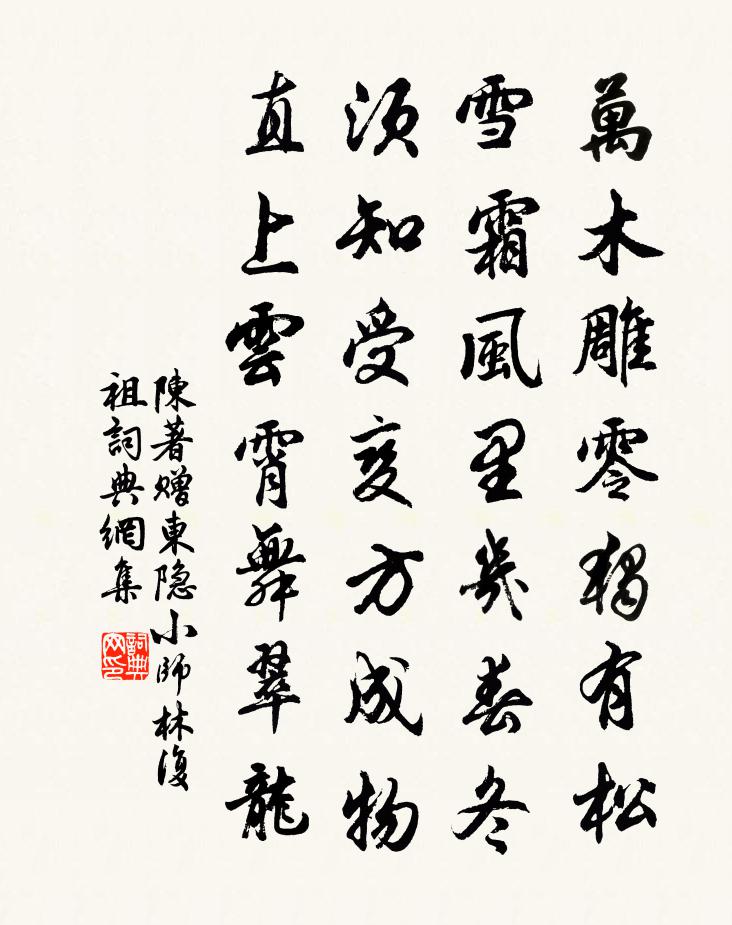 萬木雕零獨有松
雪霜風里幾春冬
須知受变方成物
直上雲霄舞翠龍
陳著赠東隐小師林復
祖詞典網集
詞典网印